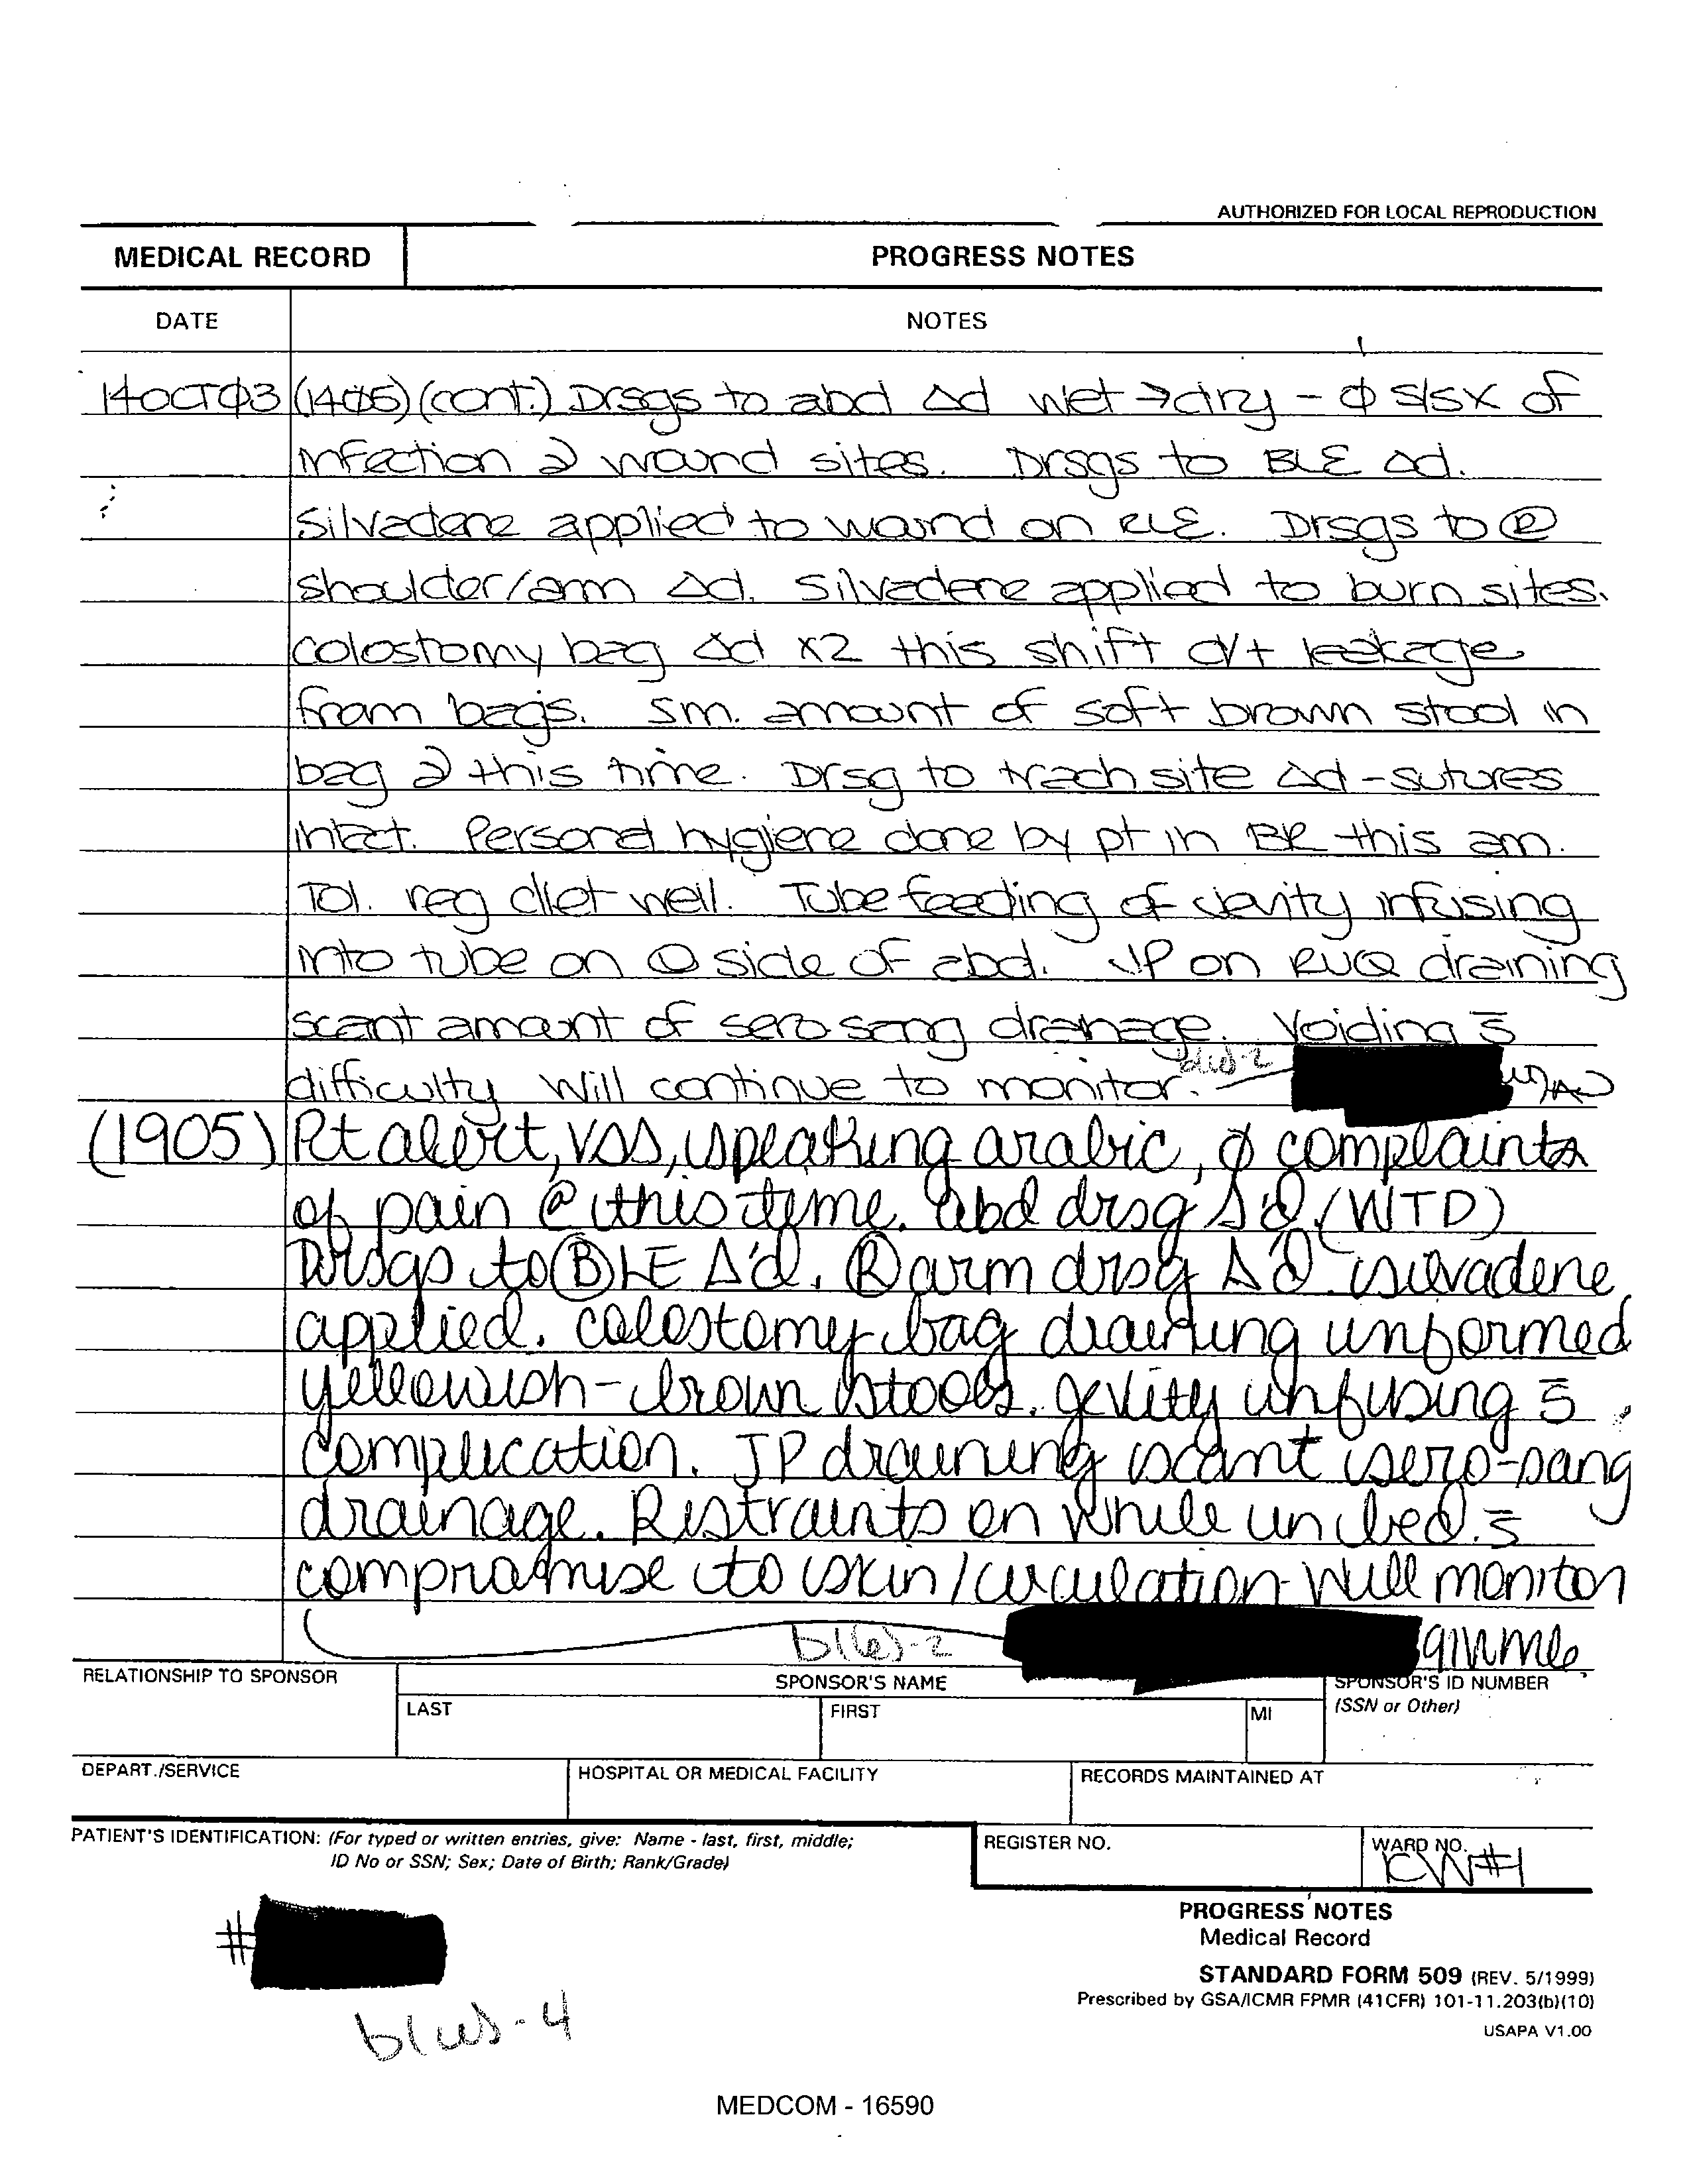 AUTHORIZED FOR LOCAL REPRODUCTION
MEDICAL RECORD PROGRESS NOTES
DATE NOTES
14OCTØ3 (1405) (cont.) Drsgs to abd Δd wet → dry - Ø s/sx of
infection @ wound sites. Drsgs to BLE Δd.
Silvadene applied to wound on RLE. Drsgs to Ⓡ
shoulder/arm Δd. Silvadene applied to burn sites.
Colostomy bag Δd x2 this shift d/t leakage
from bags. Sm. amount of soft brown stool in
bag @ this time. Drsg to trach site Δd - sutures
intact. Personal hygiene done by pt in BR this am.
Tol. reg diet well. Tube feeding of Jevity infusing
into tube on Ⓛ side of abd. JP on RUQ draining
scant amount of sero sang drainage. Voiding s̄
difficulty Will continue to monitor.
b(6)-2
(1905) Pt alert, VSS, speaking arabic, Ø complaints
of pain @ this time. abd drsg Δ'd. (WTD)
Drsgs to Ⓑ LE Δ'd. Ⓡ arm drsg Δ'd silvadene
applied. colostomy bag draining unformed
yellowish-brown stools. gevity infusing s̄
complication. JP draining scant sero-sang
drainage. Restraints on while in bed. s̄
compromise to skin/circulation Will monitor
b(6)-2 91WM6
RELATIONSHIP TO SPONSOR SPONSOR'S NAME SPONSOR'S ID NUMBER
(SSN or Other)
LAST FIRST MI
DEPART./SERVICE HOSPITAL OR MEDICAL FACILITY RECORDS MAINTAINED AT
PATIENT'S IDENTIFICATION: (For typed or written entries, give: Name - last, first, middle;
ID No or SSN; Sex; Date of Birth; Rank/Grade)
REGISTER NO. WARD NO.
ICW#1
#
b(6)-4
PROGRESS NOTES
Medical Record
STANDARD FORM 509 (REV. 5/1999)
Prescribed by GSA/ICMR FPMR (41CFR) 101-11.203(b)(10)
USAPA V1.00
MEDCOM - 16590